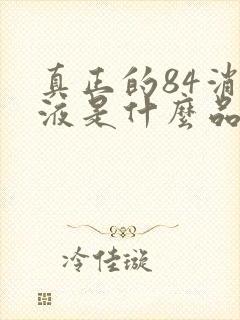 真正的84消
液是什麼品
冷佳璇